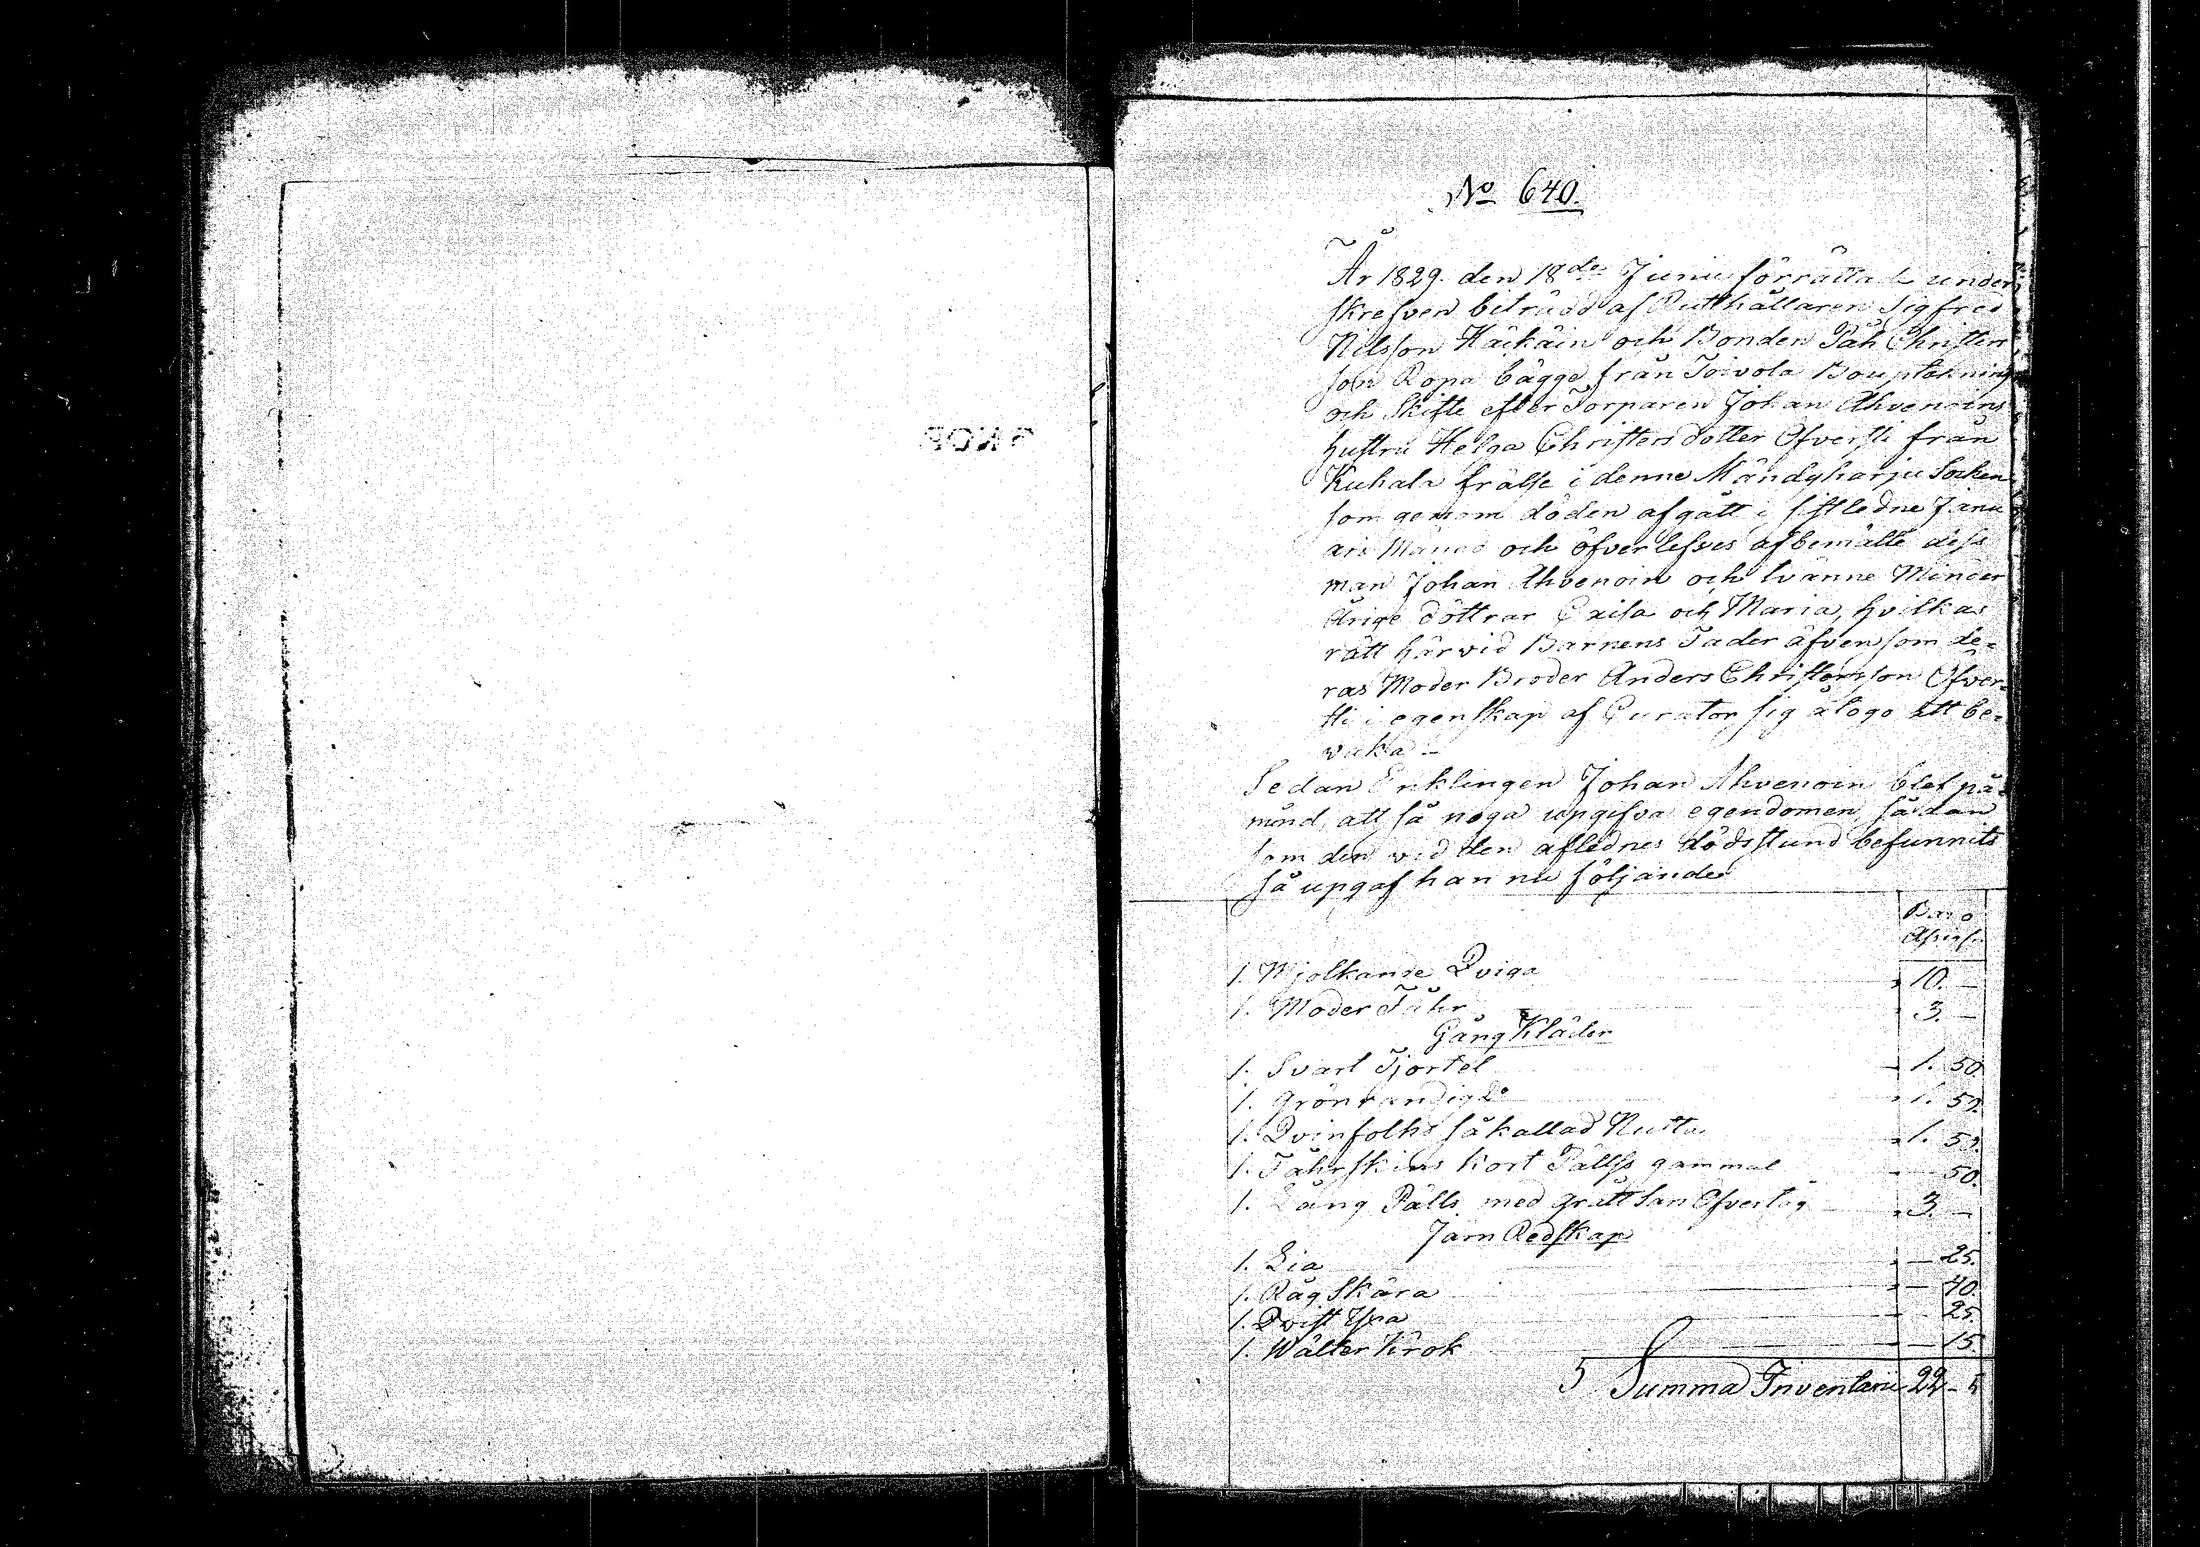 No 640.
År 1829 den 18de Junii förrättade under
skrefven biträdd af Rusthållaren Sigfred
Nilsson Häikäin och Bonden Påhl Christers
son Ropa bägge från Toivola Bouptekning
och Skifte efter Torparen Johan Ahvenoins
hustru Helga Christersdotter Ofversti från
Kuhala frälse i denne Mändyharju Socken
som genom döden afgått i sistledne Janu
arii Månad och öfverlefves af bemälte dess
man Johan Ahvenoin och tvänne Minder
årige döttrar Caisa och Maria, hvilkas
rätt härvid Barnens Fader äfvensom de-
ras Moder Broder Anders Christersson Ofver-
sti i egenskap af Curator sig åtogo att be-
vaka –
Sedan Enklingen Johan Ahvenoin blef på-
mind, att så noga upgifva egendomen sådan
som den vid den aflednes dödsstund befunnits
så upgaf han nu följande
Banco
Assign.
1. Mjolkande Qviga 10. –
1. Moder Fåhr 3. –
Gång Kläder
1. Svart Tjortel 1. 50.
1. Grönrandig Do 1. 50.
1. Qvinfolks såkallad Nutta 1. 50.
1. Fåhrskins Kort Pällss gammal – 50.
1. Lång Pälls med grått Lan Ofvertåg 3. –
Jarn Redskap
1. Lia – 25.
1. Råg Skära – 40.
1. Qvist Yxa – 25.
1. Wälter Krok – 15.
Summa Inventarii 22 – 5